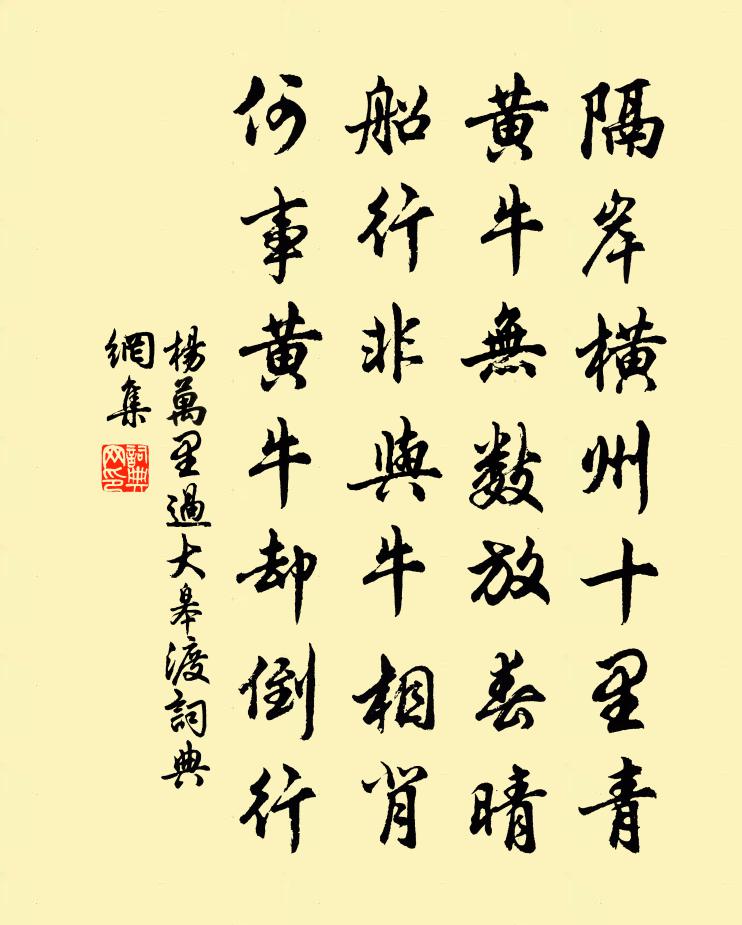 隔岸橫州十里青
黄牛無數放春晴
船行非與牛相背
何事黄牛却倒行
楊萬里過大皋渡詞典
網集
詞典
网印